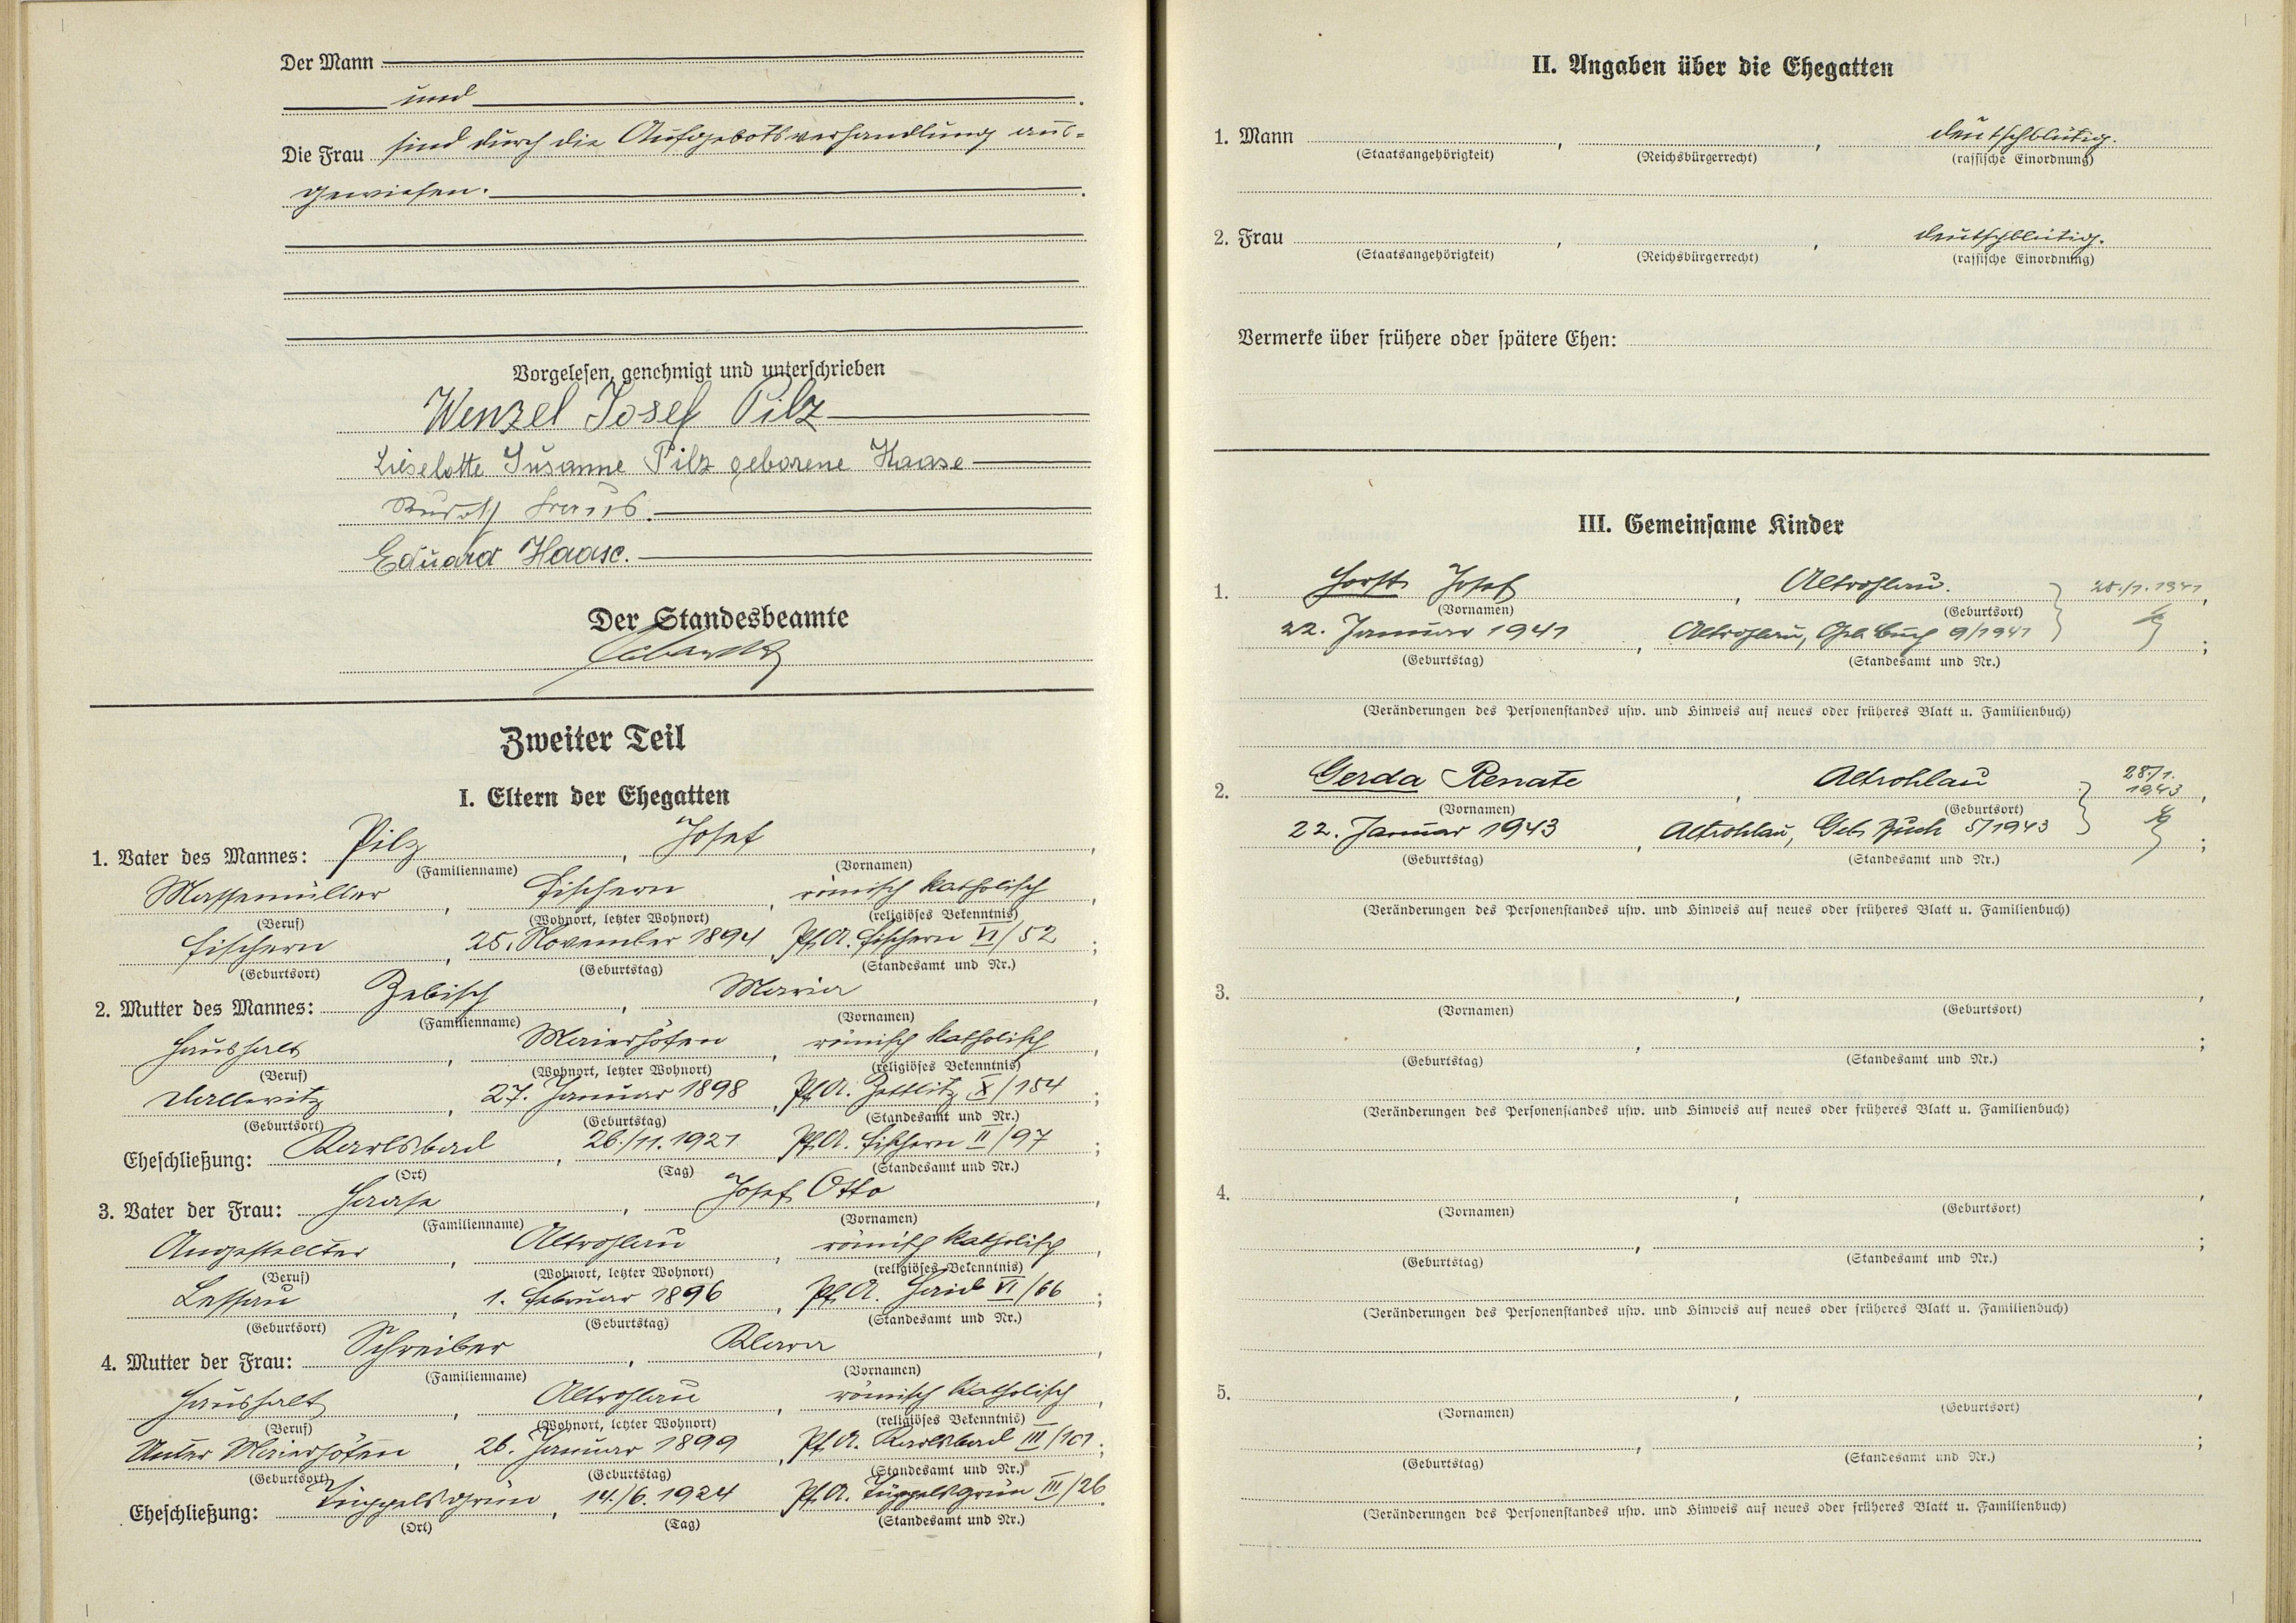 Der Mann
und
Die Frau sind durch die Aufgebotsverhandlung aus-
gewiesen.
Vorgelesen, genehmigt und unterschrieben
Wenzel Josef Pilz
Lieselotte Susanne Pilz geborene Haase
Rudolf
Eduard Haase.
Der Standesbeamte
Zweiter Teil
I. Eltern der Ehegatten
1. Vater des Mannes: Pilz, Josef,
(Familienname) (Vornamen)
Massemüller, Fischern, römisch katholisch,
(Beruf) (Wohnort, letzter Wohnort) (religiöses Bekenntnis)
Fischern, 25. November 1894, Pf.A. Fischern VI/52;
(Geburtsort) (Geburtstag) (Standesamt und Nr.)
2. Mutter des Mannes: Zebisch, Maria,
(Familienname) (Vornamen)
Haushalt, Maierhöfen, römisch katholisch,
(Beruf) (Wohnort, letzter Wohnort) (religiöses Bekenntnis)
Dallwitz, 27. Januar 1898, Pf.A. Zettlitz X/154;
(Geburtsort) (Geburtstag) (Standesamt und Nr.)
Eheschließung: Karlsbad, 26./11.1921 Pf.A. Fischern II/97;
(Ort) (Tag) (Standesamt und Nr.)
3. Vater der Frau: Haase, Josef Otto,
(Familienname) (Vornamen)
Angestellter, Altrohlau, römisch katholisch,
(Beruf) (Wohnort, letzter Wohnort) (religiöses Bekenntnis)
Lessau, 1. Februar 1896, Pf.A. Haid VI/66;
(Geburtsort) (Geburtstag) (Standesamt und Nr.)
4. Mutter der Frau: Schreiber, Klara,
(Familienname) (Vornamen)
Haushalt, Altrohlau, römisch katholisch,
(Beruf) (Wohnort, letzter Wohnort) (religiöses Bekenntnis)
Unter Maierhöfen, 26. Januar 1899, Pf.A. Karlsbad III/101;
(Geburtsort) (Geburtstag) (Standesamt und Nr.)
Eheschließung: Tüppelsgrün, 14./6.1924 Pf.A. Tüppelsgrün III/26.
(Ort) (Tag) (Standesamt und Nr.)
II. Angaben über die Ehegatten
1. Mann , , deutschblütig.
(Staatsangehörigkeit) (Reichsbürgerrecht) (rassische Einordnung)
2. Frau , , deutschblütig.
(Staatsangehörigkeit) (Reichsbürgerrecht) (rassische Einordnung)
Vermerke über frühere oder spätere Ehen:
III. Gemeinsame Kinder
1. Horst Josef, Altrohlau. 28./1.1941,
(Vornamen) (Geburtsort)
22. Januar 1941, Altrohlau, Geb. Buch 9/1941;
(Geburtstag) (Standesamt und Nr.)
(Veränderungen des Personenstandes usw. und Hinweis auf neues oder früheres Blatt u. Familienbuch)
2. Gerda Renate, Altrohlau 28./1. 1943,
(Vornamen) (Geburtsort)
22. Januar 1943, Altrohlau, Geb. Buch 5/1943;
(Geburtstag) (Standesamt und Nr.)
(Veränderungen des Personenstandes usw. und Hinweis auf neues oder früheres Blatt u. Familienbuch)
3. , ,
(Vornamen) (Geburtsort)
, ;
(Geburtstag) (Standesamt und Nr.)
(Veränderungen des Personenstandes usw. und Hinweis auf neues oder früheres Blatt u. Familienbuch)
4. , ,
(Vornamen) (Geburtsort)
, ;
(Geburtstag) (Standesamt und Nr.)
(Veränderungen des Personenstandes usw. und Hinweis auf neues oder früheres Blatt u. Familienbuch)
5. , ,
(Vornamen) (Geburtsort)
, ;
(Geburtstag) (Standesamt und Nr.)
(Veränderungen des Personenstandes usw. und Hinweis auf neues oder früheres Blatt u. Familienbuch)